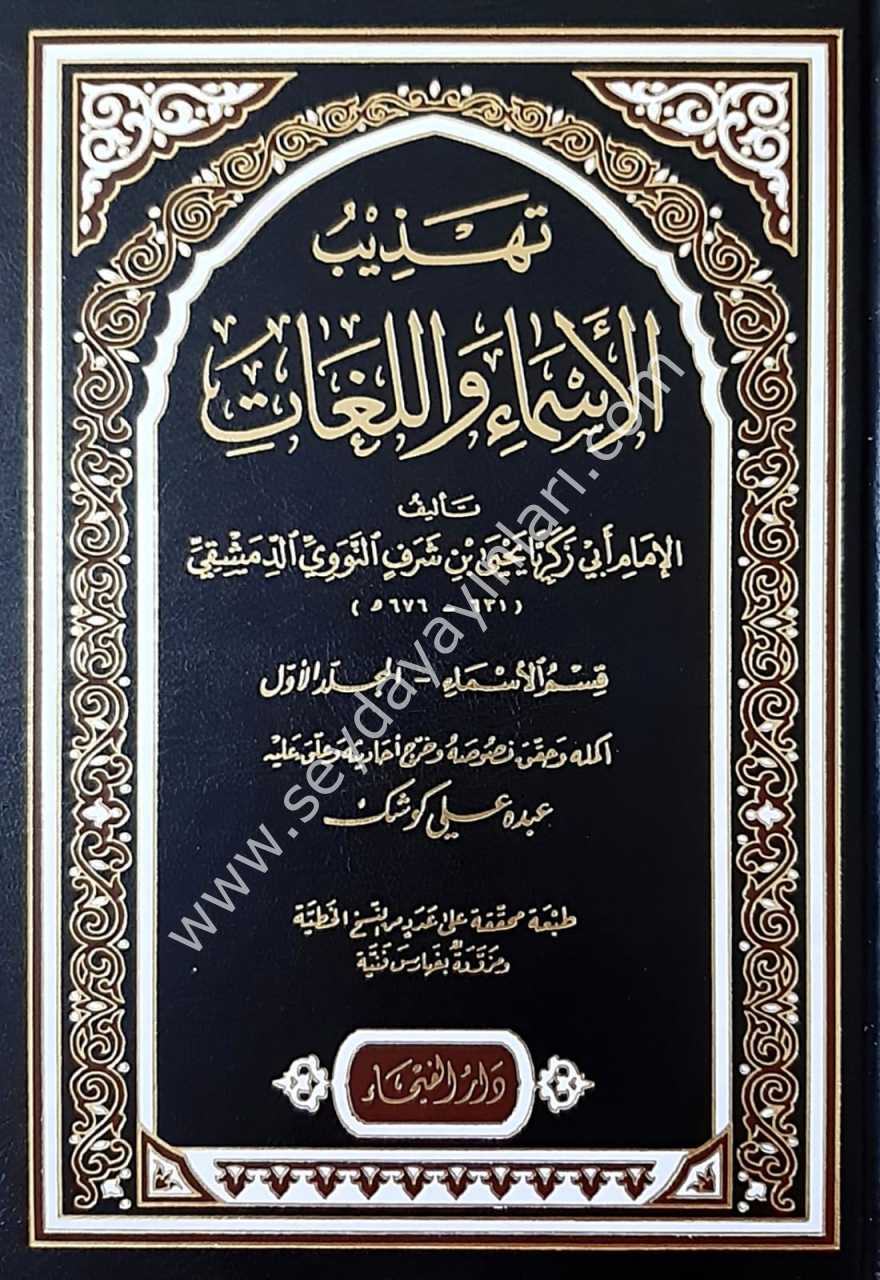 تهذيب
الأسماء واللغات
تأليف
الإمام أبي زكريا يحيى بن شرف النووي الدمشقي
(٦٣١ - ٦٧٦ هـ)
قسم الأسماء - المجلد الأول
أكمله وحقق نصوصه وخرج أحاديثه وعلق عليه
عبده علي كوشك
طبعة محققة على عدد من النسخ الخطية
ومزودة بفهارس فنية
دار الفيحاء
www.seydayayinlari.com